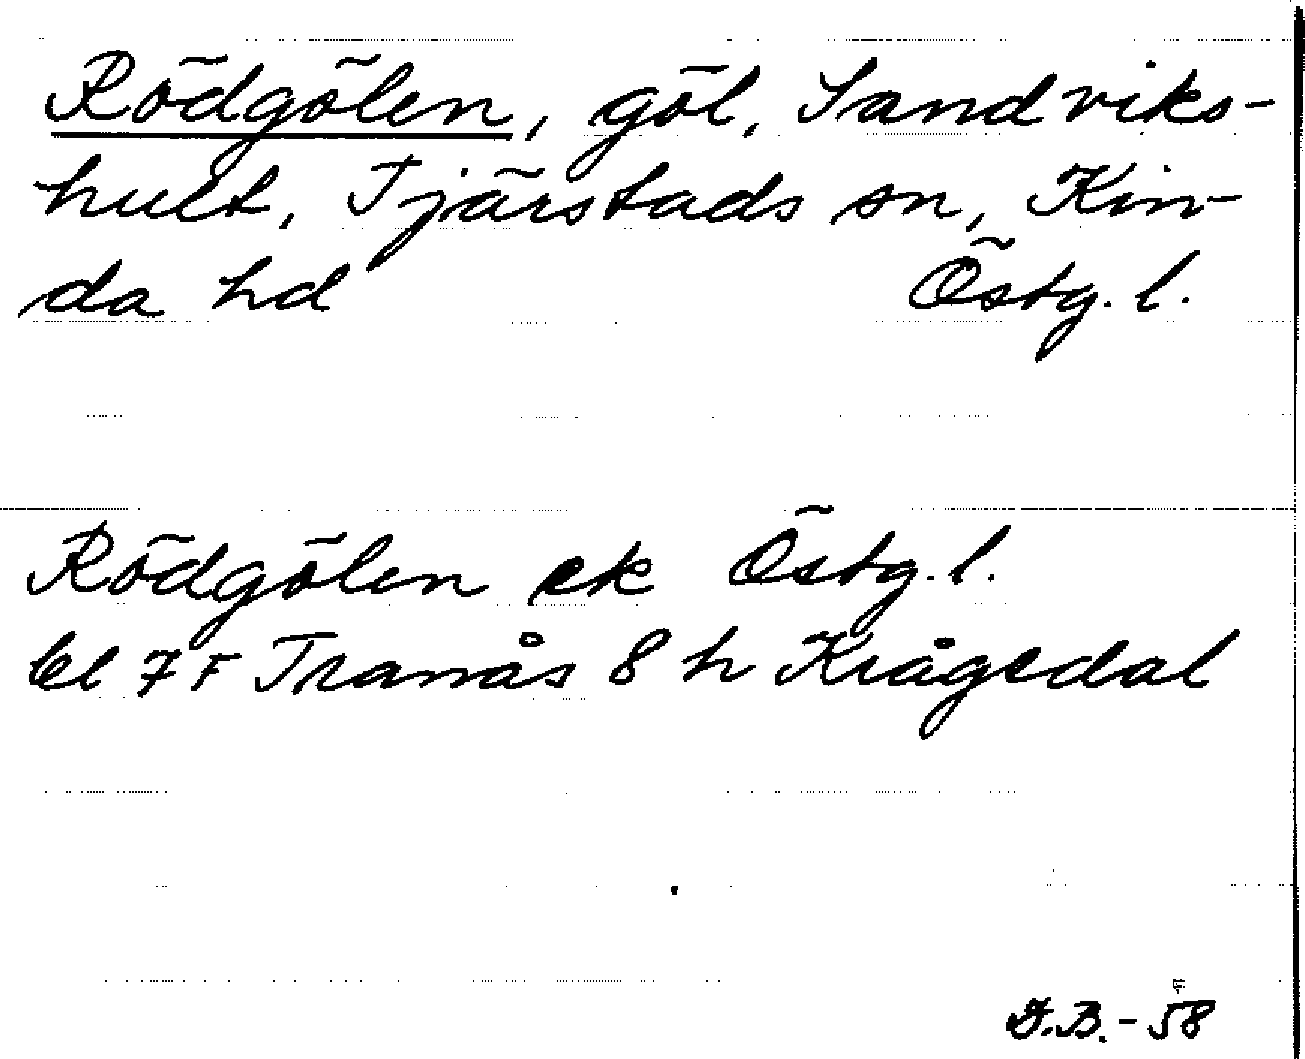 Rödgölen, göl, Sandviks-
hult, Tjärstads sn, Kin-
da hd Östg. l.
Rödgölen ek Östg. l.
bl 7 F Tranås 8 h Krågedal
G.B. - 58